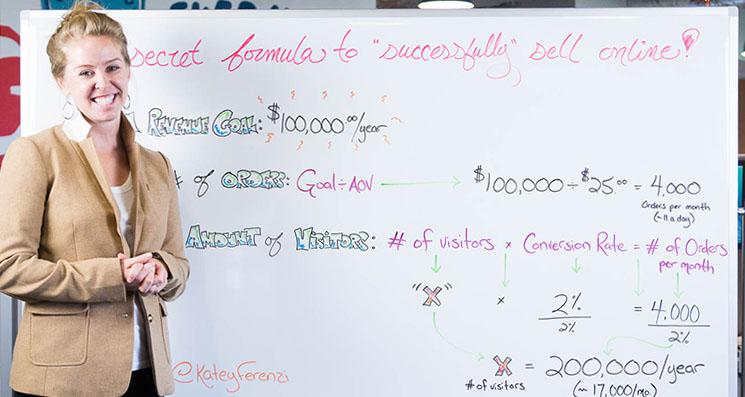 secret formula to "successfully" sell online!
REVENUE GOAL: $100,000⁰⁰/year
# of ORDERS: Goal÷AOV → $100,000 ÷ $25⁰⁰ = 4,000
Orders per month
(~11 a day)
AMOUNT of VISITORS: # of visitors × Conversion Rate = # of Orders
per month
"X" × 2% = 4,000
2% 2%
X = 200,000/year
# of visitors (~ 17,000/mo.)
@KateyFerenzi